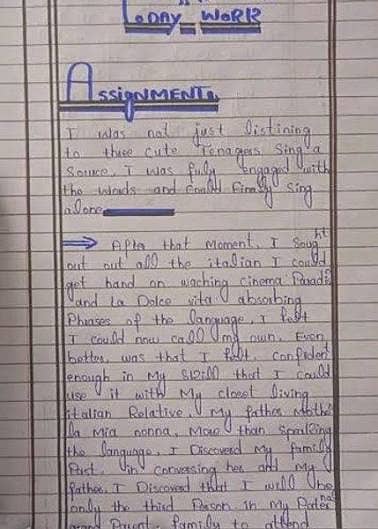 LODAY WORK
ASSIGNMENT.
I was not just listining
to three cute Tenagers Sing a
I was fuly engaged with
the words and Could finaly Sing
alone
After that moment, I Sought
out out all the italian I could
get hand on waching cinema Paradi
and La Dolce vita absorbing
Phrases of the language, I felt
I could now call my own. Even
better, was that I felt confident
enough in My that I could
use it with My closet living
italian Relative, My father
la mia nonna, More than Speaking
the language, I Discoverd My family
Past. in conversing her and My
father. I Discoverd that I will be
only the third Person in My Pater
Parent family to attend